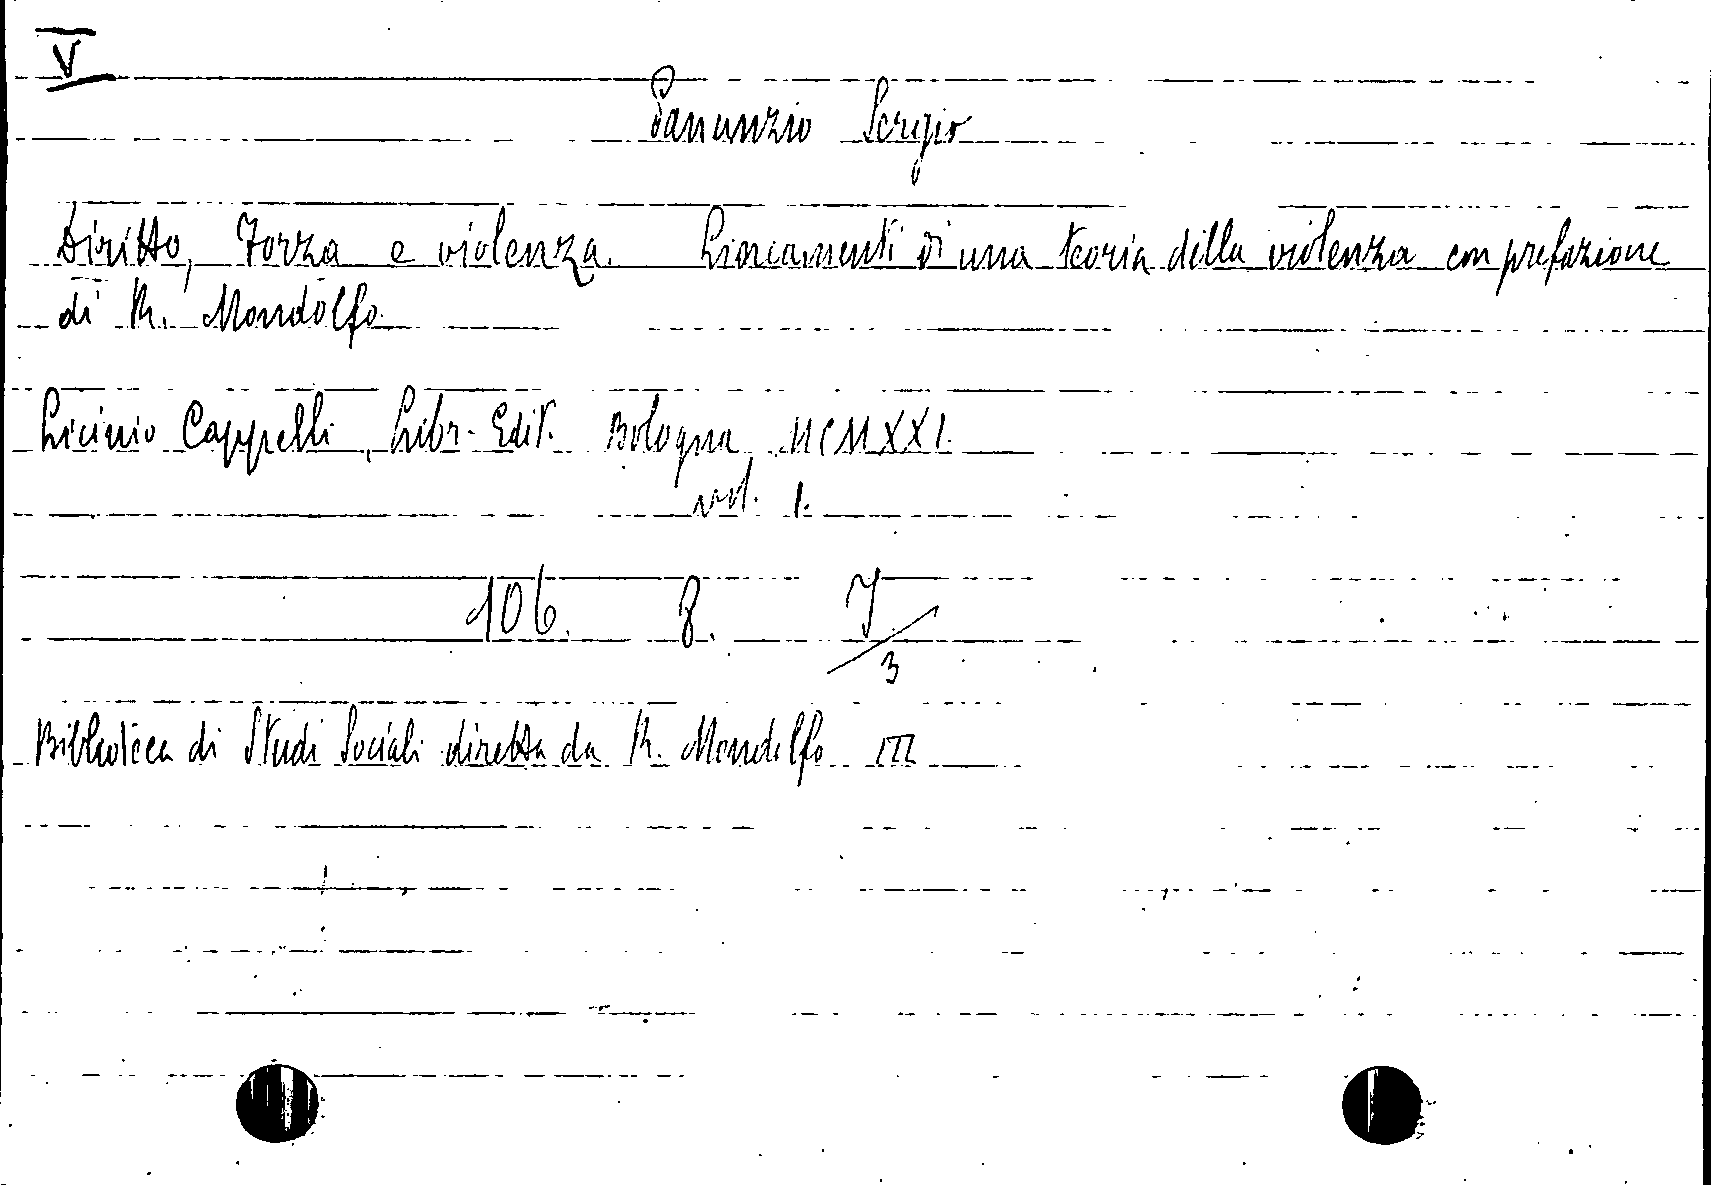 V
Panunzio Sergio
Diritto, Forza e violenza. Lineamenti di una teoria della violenza con prefazione
di R. Mondolfo
Licinio Cappelli, Libr. Edit. Bologna, MCMXXI.
vol. 1.
106. 8. 7/3
Biblioteca di Studi Sociali diretta da R. Mondolfo III